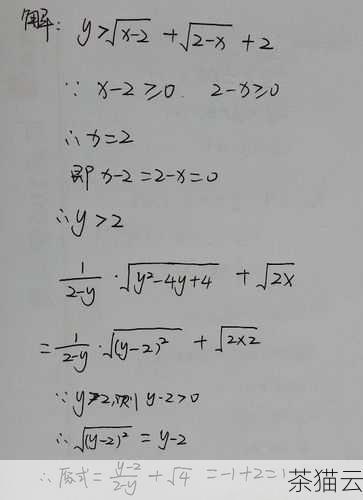 解: y>√(x-2) + √(2-x) + 2
∵ x-2≥0. 2-x≥0
∴ x=2
即 x-2=2-x=0
∴ y>2
1/(2-y) · √(y²-4y+4) + √(2x)
= 1/(2-y) · √((y-2)²) + √(2×2)
∵ y>2,则 y-2>0
∴ √((y-2)²) = y-2
∴ 原式 = (y-2)/(2-y) + √4 = -1+2=1
茶猫云